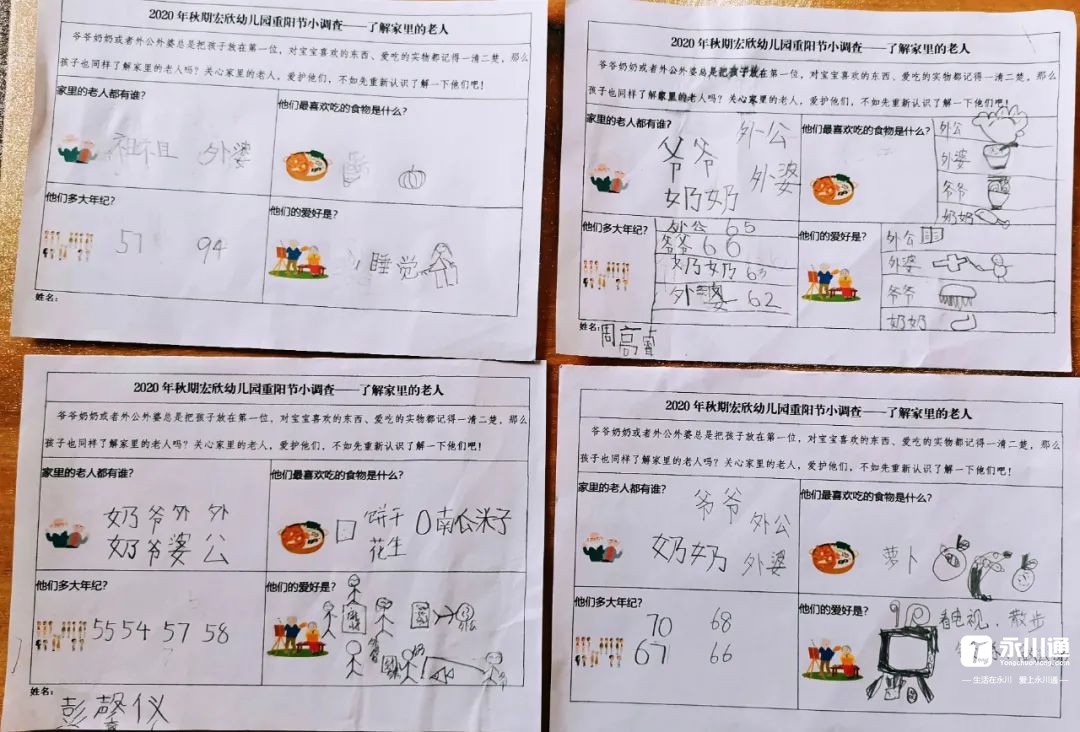 2020年秋期宏欣幼儿园重阳节小调查——了解家里的老人
爷爷奶奶或者外公外婆总是把孩子放在第一位，对宝宝喜欢的东西、爱吃的实物都记得一清二楚，那么
孩子也同样了解家里的老人吗？关心家里的老人，爱护他们，不如先重新认识了解一下他们吧！
家里的老人都有谁？
外婆
他们最喜欢吃的食物是什么？
他们多大年纪？
57 94
他们的爱好是？
睡觉
姓名：
2020年秋期宏欣幼儿园重阳节小调查——了解家里的老人
爷爷奶奶或者外公外婆总是把孩子放在第一位，对宝宝喜欢的东西、爱吃的实物都记得一清二楚，那么
孩子也同样了解家里的老人吗？关心家里的老人，爱护他们，不如先重新认识了解一下他们吧！
家里的老人都有谁？
爷爷 外公
奶奶 外婆
他们最喜欢吃的食物是什么？
外公
外婆
爷爷
奶奶
他们多大年纪？
外公 65
爷爷 66
奶奶 63
外婆 62
他们的爱好是？
外公
外婆
爷爷
奶奶
姓名：周高睿
2020年秋期宏欣幼儿园重阳节小调查——了解家里的老人
爷爷奶奶或者外公外婆总是把孩子放在第一位，对宝宝喜欢的东西、爱吃的实物都记得一清二楚，那么
孩子也同样了解家里的老人吗？关心家里的老人，爱护他们，不如先重新认识了解一下他们吧！
家里的老人都有谁？
奶 爷 外 外
奶 爷 婆 公
他们最喜欢吃的食物是什么？
饼干
花生
南瓜米子
他们多大年纪？
55 54 57 58
他们的爱好是？
姓名：
彭馨仪
2020年秋期宏欣幼儿园重阳节小调查——了解家里的老人
爷爷奶奶或者外公外婆总是把孩子放在第一位，对宝宝喜欢的东西、爱吃的实物都记得一清二楚，那么
孩子也同样了解家里的老人吗？关心家里的老人，爱护他们，不如先重新认识了解一下他们吧！
家里的老人都有谁？
爷爷 外公
奶奶 外婆
他们最喜欢吃的食物是什么？
萝卜
他们多大年纪？
70 68
67 66
他们的爱好是？
看电视，散步
永川通
生活在永川 爱上永川通